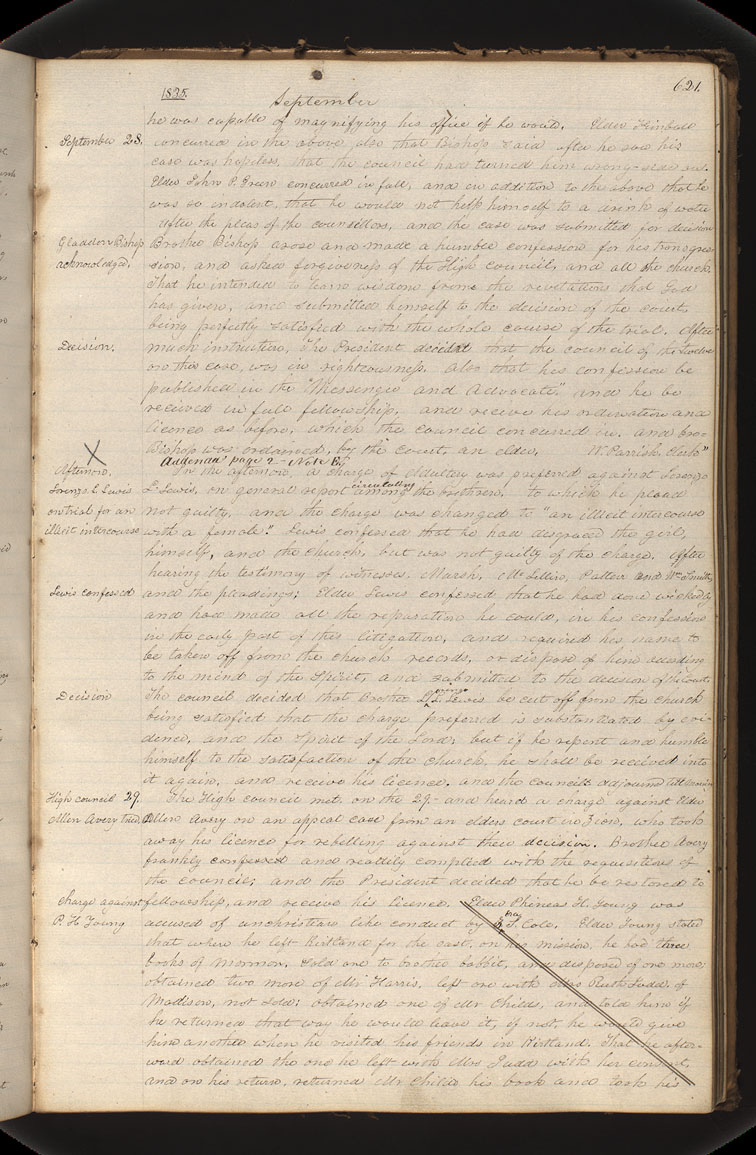 1835.
September
621.
he was capable of magnifying his office if he would. Elder Kimball
September 28. concurred in the above, also that Bishop said after he saw his
case was hopeless, that the council had turned him wrong-side out.
Elder John P. Green concurred in full, and in addition to the above that he
was so indolent, that he would not help himself to a drink of water
After the pleas of the councillors, and the case was submitted for decision
Gladden Bishop Brother Bishop arose and made a humble confession for his transgres-
acknowledged. sion, and asked forgiveness of the High council, and all the church.
That he intended to learn wisdom from the revelations that God
has given, and submitted himself to the decision of the court,
being perfectly satisfied with the whole course of the trial. After
Decision. much instruction, the President decided that the council of the Twelve
on this case, was in righteousness. Also that his confession be
published in the "Messenger and Advocate." and he be
received in full fellowship, and receive his ordination and
licence as before, which the council concurred in. and bro.
Bishop was ordained, by the court, an elder. W. Parrish, Clerk"
X Addenda page 2 - Note By
Afternoon. In the afternoon, a charge of Adultery was preferred against Lorenzo
Lorenzo L Lewis L. Lewis, on general report circulating among the brethren, to which he plead
on trial for an not guilty, and the charge was changed to "an illicit intercourse
illicit intercourse with a female." Lewis confessed that he had disgraced the girl,
himself, and the church, but was not guilty of the charge. After
hearing the testimony of witnesses, Marsh, McLellin, Patten and Wm Smith,
Lewis confessed and the pleadings; Elder Lewis confessed that he had done wickedly
and had made all the reparation he could, in his confession
in the early part of this litigation, and required his name to
be taken off from the church records, or dispose of him according
to the mind of the Spirit, and submitted to the decision of the Court.
Decision The council decided that Brother L. L. Lewis be cut off from the church
being satisfied that the charge preferred is substantiated by evi-
dence, and the Spirit of the Lord; but if he repent and humble
himself to the satisfaction of the church, he shall be received into
it again, and receive his licence. and the council adjourned
High council 29. The High council met on the 29th and heard a charge against Elder
Allen Avery tried. Allen Avery on an appeal case from an elders court in Zion, who took
away his licence for rebelling against their decision. Brother Avery
frankly confessed and readily complied with the requisitions of
the council; and the President decided that he be restored to
Charge against fellowship, and receive his licence. Elder Phineas H. Young was
P. H. Young accused of unchristian like conduct by Z. Cole. Elder Young stated
that when he left Kirtland for the east, on his mission, he had three
books of mormon. Sold one to brother Babbit, and disposed of one more;
obtained two more of Mr Harris. left one with Mrs Ruth Judd, of
Madison, not sold; obtained one of Mr Childs, and told him if
he returned that way he would leave it, if not, he would give
him another when he visited his friends in Kirtland. That he after-
ward obtained the one he left with Mrs Judd with her consent,
and on his return, returned Mr Childs his book and took his